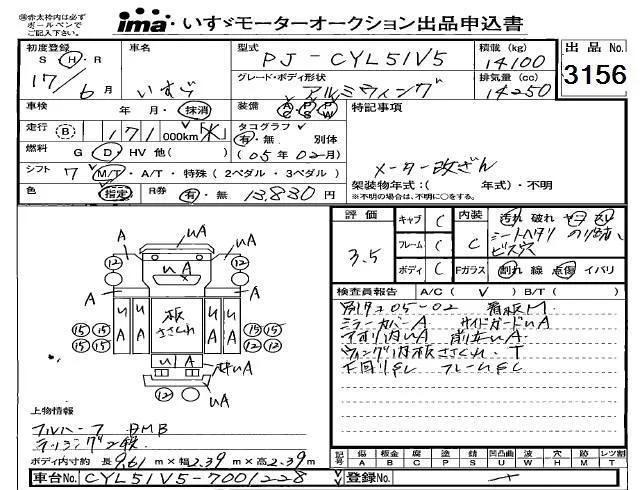 ※赤太枠内は必ず
ボールペンで
ご記入下さい。
ima いすゞモーターオークション出品申込書
初度登録 車名 型式 積載 (kg) 出品 No.
S H・R PJ-CYL51V5 14100
17/6月 いすゞ グレード・ボディ形状 アルミウィング 排気量(cc) 14250 3156
車検 年 月・抹消 装備 AC PS PW 特記事項
走行 B 171 000km タコグラフ
有・無 別体
燃料 G D・HV 他( ) (05年02月)
メーター改ざん
シフト 7 M/T・A/T・特殊(2ペダル・3ペダル) 架装物年式:( 年式)・不明
色 指定 R券 有・無 13,830円 ※不明の場合は、不明に○をする。
評価 キャブ C 内装 汚れ 破れ ヤニ
3.5 フレーム C C シートヘタリ ノリ跡
ビス穴
ボディ C Fガラス 割れ 線 点傷 イバリ
検査員報告 A/C( ) B/T( )
別タコ05-02 看板M
ミラーカバーA サイドガードuA
ウィング内板ささくれ・T
下回りFC フレームFC
A uA
12 uA 12
A A
uA 板ささくれ uA
15 15 15 15
15 15 12 12
uA
uA
12
上物情報
フルハーフ BMB
ラッシング2段
ボディ内寸約 長9.61m×幅2.39m×高2.39m
記号 傷 板金 腐 塗 錆 凹凸曲 波 穴 跡 レツ割
A B C P S U W H M T
車台No. CYL51V5-7001228 登録No.